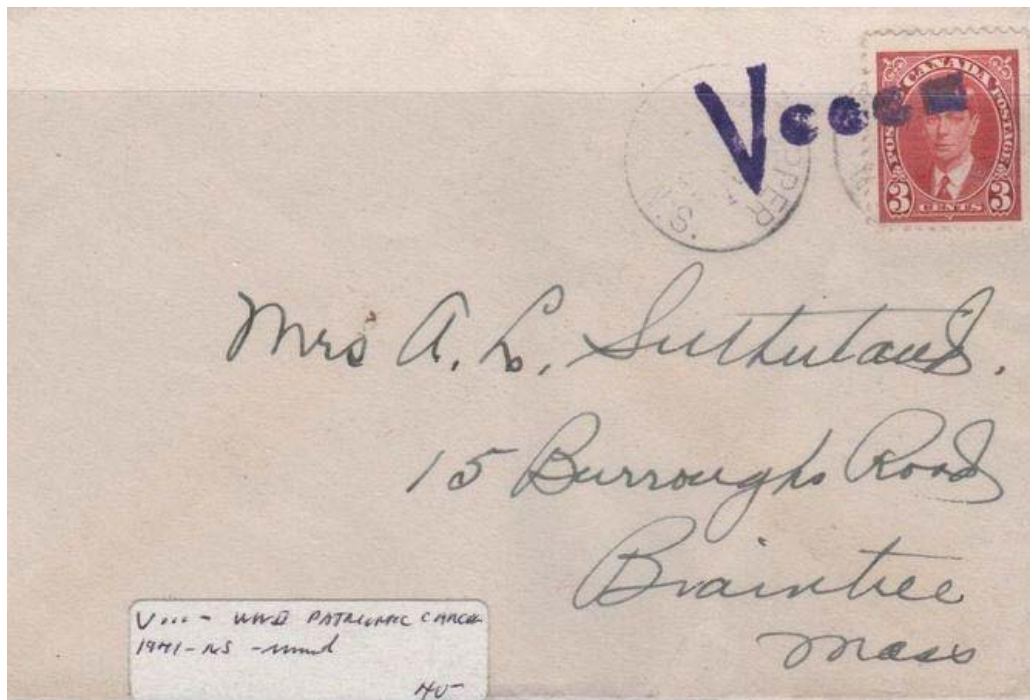 V...-
CANADA
POSTES POSTAGE
3 CENTS 3
OPER
N.S.
Mrs A. L. Sutherland.
15 Burroughs Road
Braintree
Mass
V...- WWII PATRIOTIC CANCEL
1941-NS -
40